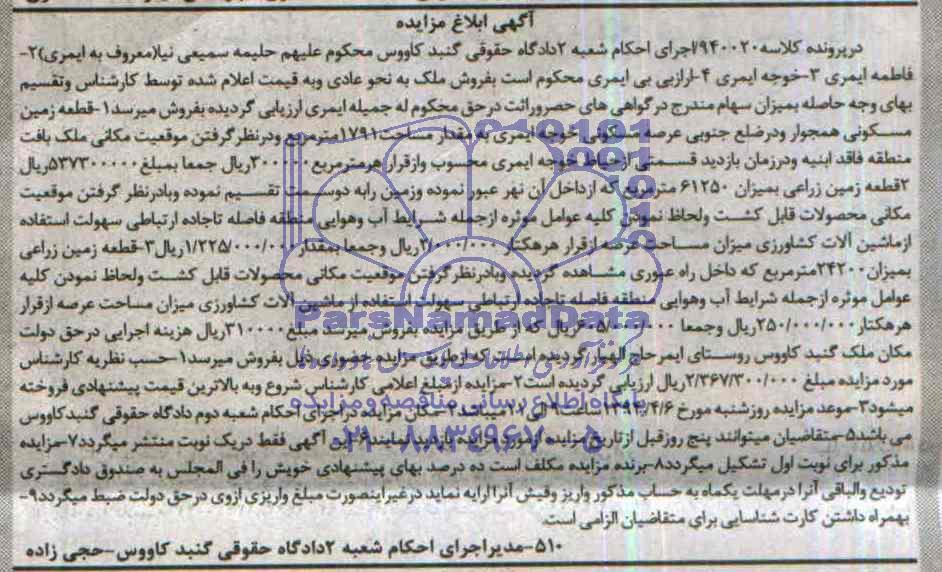 آگهی ابلاغ مزایده
درپرونده کلاسه ۹۴۰۰۲۰/اجرای احکام شعبه ۲دادگاه حقوقی گنبد کاووس محکوم علیهم حلیمه سمیعی نیا(معروف به ایمری)۲-
فاطمه ایمری ۳-خوجه ایمری ۴-ارازبی بی ایمری محکوم است بفروش ملک به نحو عادی وبه قیمت اعلام شده توسط کارشناس وتقسیم
بهای وجه حاصله بمیزان سهام مندرج درگواهی های حصروراثت درحق محکوم له جمیله ایمری ارزیابی گردیده بفروش میرسد۱-قطعه زمین
مسکونی همجوار ودرضلع جنوبی عرصه مسکونی خوجه ایمری به مقدار مساحت۱۷۹۱مترمربع ودرنظرگرفتن موقعیت مکانی ملک بافت
منطقه فاقد ابنیه ودرزمان بازدید قسمتی ازحیاط خوجه ایمری محسوب وازقرار هرمترمربع ۳۰۰۰۰۰ریال جمعا بمبلغ۵۳۷۳۰۰۰۰۰ریال
۲قطعه زمین زراعی بمیزان ۶۱۲۵۰ مترمربع که ازداخل آن نهر عبور نموده وزمین رابه دوسمت تقسیم نموده وبادرنظر گرفتن موقعیت
مکانی محصولات قابل کشت ولحاظ نمودن کلیه عوامل موثره ازجمله شرایط آب وهوایی منطقه فاصله تاجاده ارتباطی سهولت استفاده
ازماشین آلات کشاورزی میزان مساحت عرصه ازقرار هرهکتار ۲/۰۰۰/۰۰۰ریال وجمعا بمقدار ۱/۲۲۵/۰۰۰/۰۰۰ریال۳-قطعه زمین زراعی
بمیزان۲۴۲۰۰مترمربع که داخل راه عبوری مشاهده گردیده وبادرنظرگرفتن موقعیت مکانی محصولات قابل کشت ولحاظ نمودن کلیه
عوامل موثره ازجمله شرایط آب وهوایی منطقه فاصله تاجاده ارتباطی سهولت استفاده از ماشین آلات کشاورزی میزان مساحت عرصه ازقرار
هرهکتار ۲۵۰/۰۰۰/۰۰۰ریال وجمعا ۶۰۵/۰۰۰/۰۰۰ریال که ازطریق مزایده بفروش میرسد مبلغ۳۱۰۰۰۰ریال هزینه اجرایی درحق دولت
مکان ملک گنبد کاووس روستای ایمرحاج الهیار گردیده است که ازطریق مزایده حضوری ذیل بفروش میرسد۱-حسب نظریه کارشناس
مورد مزایده مبلغ ۲/۳۶۷/۳۰۰/۰۰۰ریال ارزیابی گردیده است۲-مزایده ازمبلغ اعلامی کارشناس شروع وبه بالاترین قیمت پیشنهادی فروخته
میشود۳-موعد مزایده روزشنبه مورخ ۱۳۹۴/۴/۶ساعت۹الی۱۰میباشد۴-مکان مزایده دراجرای احکام شعبه دوم دادگاه حقوقی گنبدکاووس
می باشد۵-متقاضیان میتوانند پنج روزقبل ازتاریخ مزایده ازمورد مزایده بازدید نمایند۶-این آگهی فقط دریک نوبت منتشر میگردد۷-مزایده
مذکور برای نوبت اول تشکیل میگردد۸-برنده مزایده مکلف است ده درصد بهای پیشنهادی خویش را فی المجلس به صندوق دادگستری
تودیع والباقی آنرا درمهلت یکماه به حساب مذکور واریز وفیش آنرا ارایه نماید درغیراینصورت مبلغ واریزی ازوی درحق دولت ضبط میگردد۹-
بهمراه داشتن کارت شناسایی برای متقاضیان الزامی است.
۵۱۰-مدیراجرای احکام شعبه ۲دادگاه حقوقی گنبد کاووس-حجی زاده
ParsNamadData
پایگاه اطلاع رسانی مناقصه و مزایده
۰۲۱-۸۸۳۴۹۶۷۰-۵